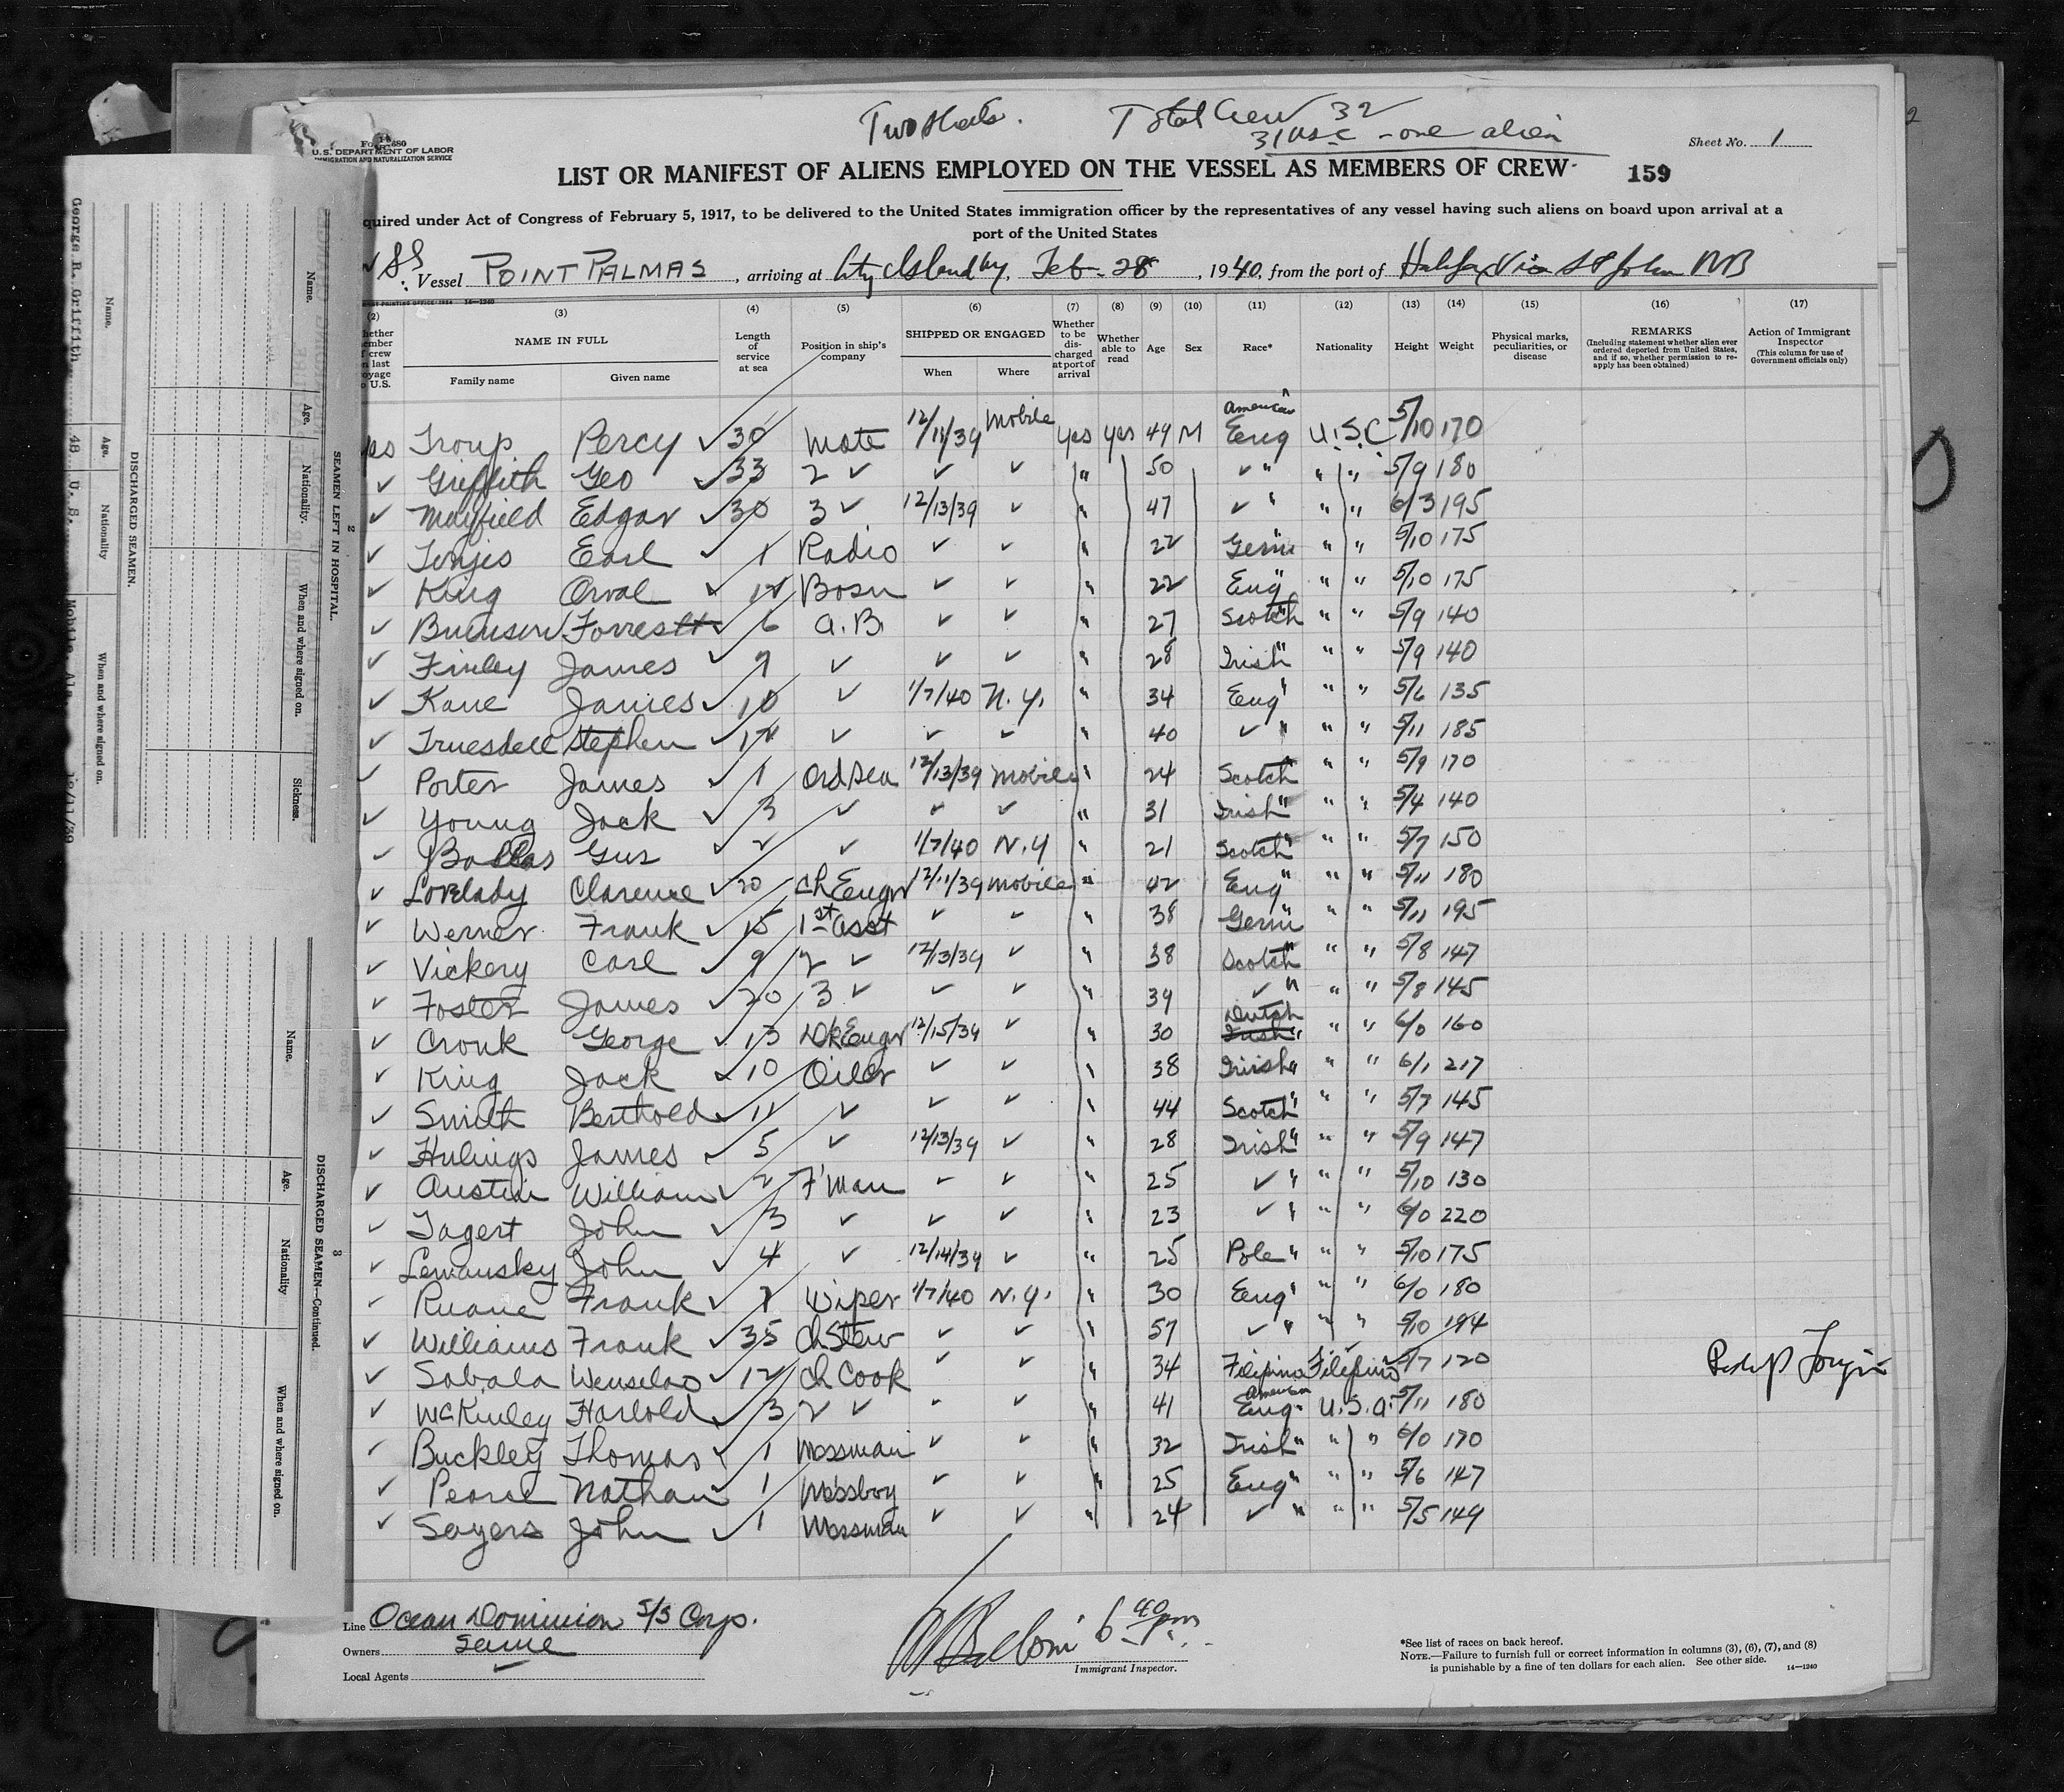 Two sheets. Total Crew 32
31 USC - one alien
Form 680
U.S. DEPARTMENT OF LABOR
IMMIGRATION AND NATURALIZATION SERVICE
Sheet No. 1
LIST OR MANIFEST OF ALIENS EMPLOYED ON THE VESSEL AS MEMBERS OF CREW
159
quired under Act of Congress of February 5, 1917, to be delivered to the United States immigration officer by the representatives of any vessel having such aliens on board upon arrival at a
port of the United States
SS Vessel POINT PALMAS, arriving at City Island NY, Feb. 28, 1940, from the port of Halifax Via St John NB
(2) (3) (4) (5) (6) (7) (8) (9) (10) (11) (12) (13) (14) (15) (16) (17)
hether ember f crew n last oyage o U.S.
NAME IN FULL
Family name Given name
Length of service at sea
Position in ship's company
SHIPPED OR ENGAGED
When Where
Whether to be discharged at port of arrival
Whether able to read
Age Sex Race* Nationality Height Weight
Physical marks, peculiarities, or disease
REMARKS
(Including statement whether alien ever ordered deported from United States, and if so, whether permission to reapply has been obtained)
Action of Immigrant Inspector
(This column for use of Government officials only)
yes Troup Percy ✓ 30 Mate 12/11/39 Mobile yes yes 49 M American Eng U.S.C 5/10 170
✓ Griffith Geo ✓ 33 2 ✓ ✓ ✓ " 50 ✓ " " " 5/9 180
✓ Mayfield Edgar ✓ 30 3 ✓ 12/13/39 ✓ " 47 ✓ " " " 6/3 195
✓ Tonjes Earl ✓ 1 Radio ✓ ✓ " 22 Germ " " " 5/10 175
✓ King Orval ✓ Bosn ✓ ✓ " 22 Eng " " " 5/10 175
✓ Forrest ✓ 6 A.B. ✓ ✓ " 27 Scotch " " " 5/9 140
✓ Finley James ✓ 7 ✓ ✓ ✓ " 28 Irish " " " 5/9 140
✓ Kane James ✓ 10 ✓ 1/7/40 N.Y. " 34 Eng " " " 5/6 135
✓ Truesdell Stephen ✓ ✓ ✓ ✓ " 40 ✓ " " " 5/11 185
✓ Porter James ✓ 1 Ord Sea 12/13/39 Mobile " 24 Scotch " " " 5/9 170
✓ Young Jack ✓ 3 ✓ ✓ ✓ " 31 Irish " " " 5/4 140
✓ Gus ✓ 2 ✓ 1/7/40 N.Y " 21 Scotch " " " 5/7 150
✓ Lovelady Clarence ✓ 20 Ch Engr 12/11/39 Mobile " 42 Eng " " " 5/11 180
✓ Werner Frank ✓ 15 1st Asst ✓ ✓ " 38 Germ " " " 5/11 195
✓ Vickery Carl ✓ 9 2 ✓ 12/13/39 ✓ " 38 Scotch " " " 5/8 147
✓ Foster James ✓ 20 3 ✓ ✓ ✓ " 39 ✓ " " " 5/8 145
✓ Cronk George ✓ 13 Dk Engr 12/15/39 ✓ " 30 Dutch Irish " " " 6/0 160
✓ King Jack ✓ 10 Oiler ✓ ✓ " 38 Irish " " " 6/1 217
✓ Smith Berthold ✓ 11 ✓ ✓ ✓ " 44 Scotch " " " 5/7 145
✓ Hulings James ✓ 5 ✓ 12/13/39 ✓ " 28 Irish " " " 5/9 147
✓ Austin William ✓ 2 F'man ✓ ✓ " 25 ✓ " " " 5/10 130
✓ Tagert John ✓ 3 ✓ ✓ ✓ " 23 ✓ " " " 6/0 220
✓ Lemansky John ✓ 4 ✓ 12/14/39 ✓ " 25 Pole " " " 5/10 175
✓ Ruane Frank ✓ Wiper 1/7/40 N.Y. " 30 Eng " " " 6/0 180
✓ Williams Frank ✓ 35 Ch Stew ✓ ✓ " 57 ✓ " " " 5/10 194
✓ Sabala Wenselao ✓ 12 Ch Cook ✓ ✓ 34 Filipino Filipino 5/7 120
✓ McKinley Harlold ✓ 3 2 ✓ ✓ ✓ " 41 American Eng U.S.A. 5/11 180
✓ Buckley Thomas ✓ 1 Messman ✓ ✓ " 32 Irish " " " 6/0 170
✓ Pearce Nathan ✓ 1 Messboy ✓ ✓ " 25 Eng " " " 5/6 147
✓ Sayers John ✓ 1 Messman ✓ ✓ " 24 ✓ " " " 5/5 149
Line Ocean Dominion S/S Corp.
Owners Same
Local Agents
6 40 pm
Immigrant Inspector.
*See list of races on back hereof.
NOTE.—Failure to furnish full or correct information in columns (3), (6), (7), and (8)
is punishable by a fine of ten dollars for each alien. See other side. 14—1240
George R. Griffith 48 U. S. Mobile, Ala.
Name. Age. Nationality When and where signed on.
DISCHARGED SEAMEN.
Name. Age. Nationality. When and where signed on. Sickness.
SEAMEN LEFT IN HOSPITAL.
2
Name. Age. Nationality When and where signed on.
DISCHARGED SEAMEN—Continued.
3